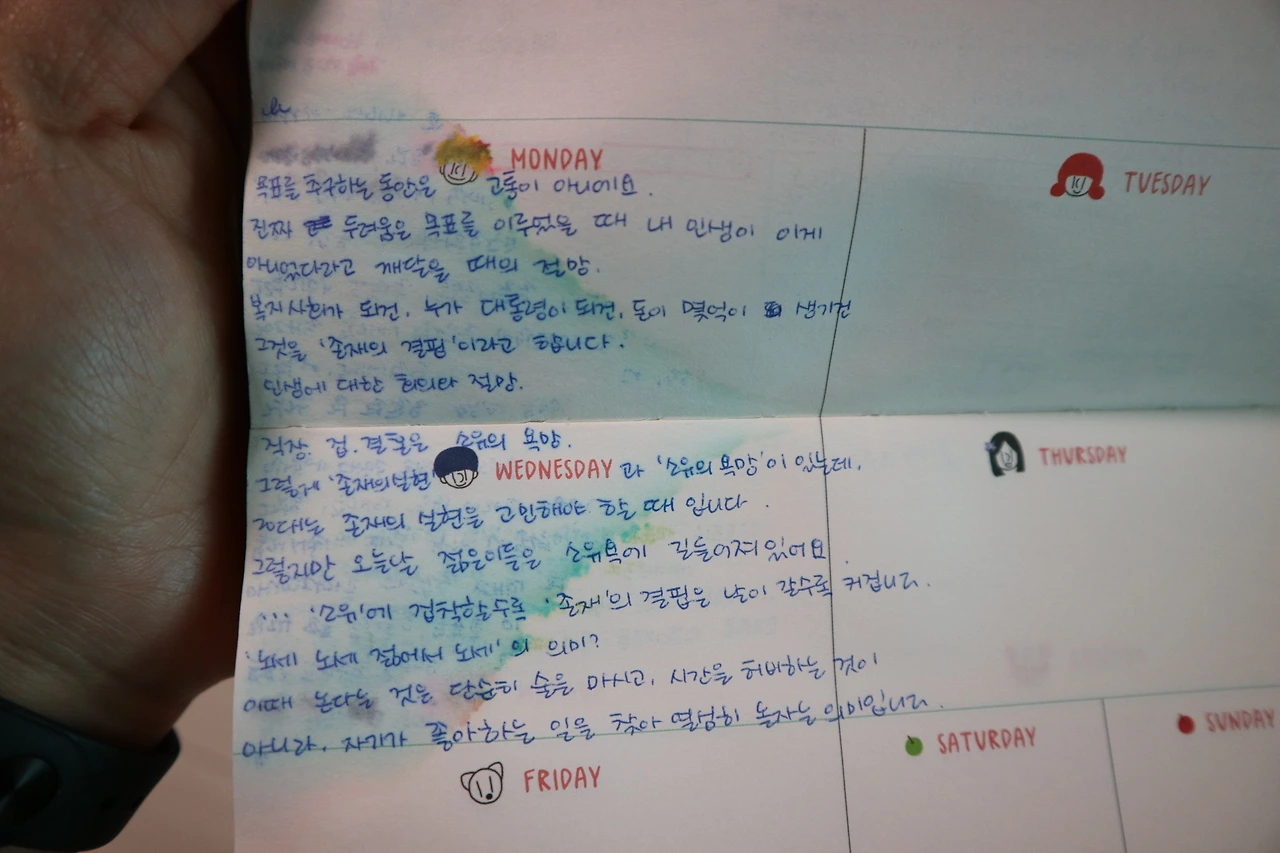 MONDAY
목표를 추구하는 동안은 고통이 아니에요.
TUESDAY
진짜 두려움은 목표를 이루었을 때 내 인생이 이게
아니었다라고 깨달을 때의 절망.
복지사회가 되건, 누가 대통령이 되건, 돈이 몇억이 생기건
그것을 '존재의 결핍'이라고 합니다.
인생에 대한 회의와 절망.
직장. 집. 결혼은 소유의 욕망.
그렇게 '존재의 실현' WEDNESDAY 과 '소유의 욕망'이 있는데,
THURSDAY
20대는 존재의 실현을 고민해야 할 때 입니다.
그렇지만 오늘날 젊은이들은 소유욕에 길들여져있어요.
... '소유'에 집착할수록 '존재'의 결핍은 날이 갈수록 커집니다.
'노세 노세 젊어서 노세' 의 의미?
이때 논다는 것은 단순히 술을 마시고, 시간을 허비하는 것이
아니라, 자기가 좋아하는 일을 찾아 열심히 놀자는 의미입니다.
FRIDAY
SATURDAY
SUNDAY